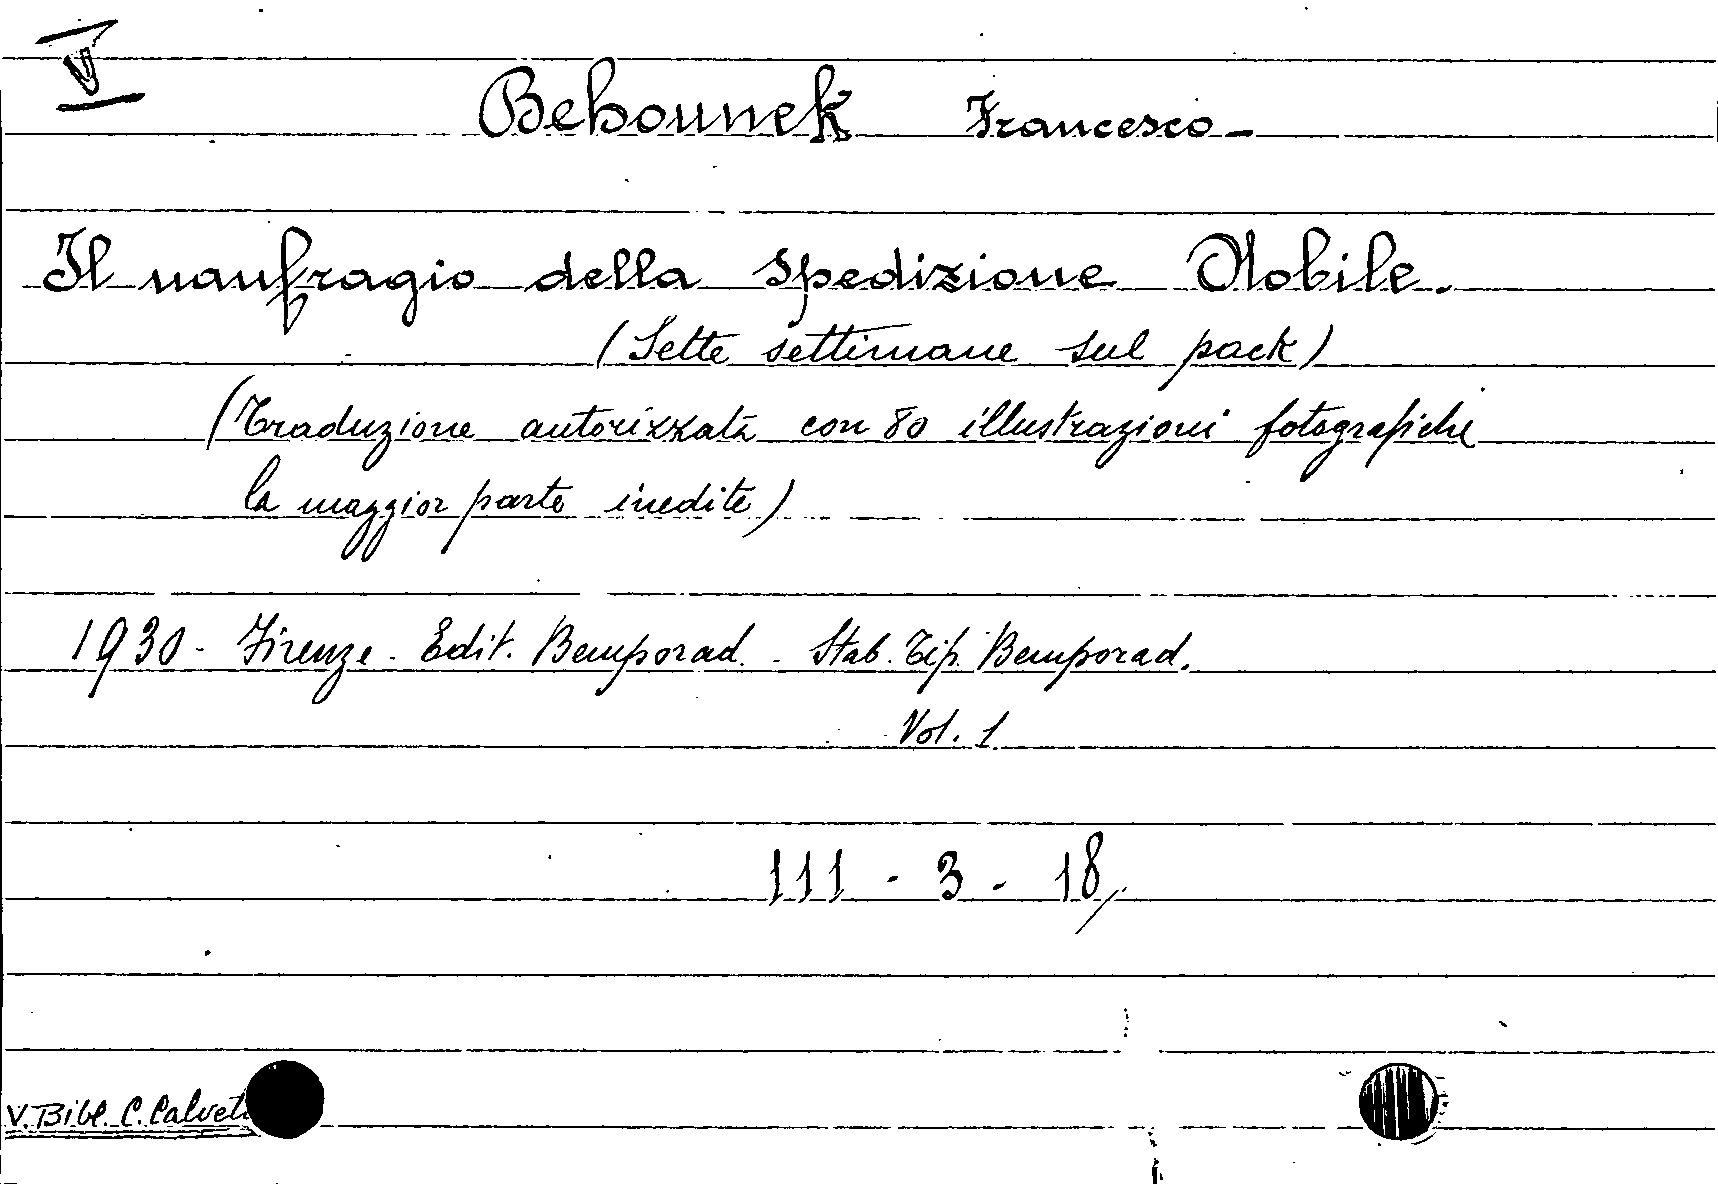 V
Behounek Francesco -
Il naufragio della spedizione Nobile.
(Sette settimane sul pack)
(Traduzione autorizzata con 80 illustrazioni fotografiche
la maggior parte inedite)
1930 - Firenze - Edit. Bemporad - Stab. Tip. Bemporad.
Vol. 1
111 - 3 - 18
V. Bibl. C.